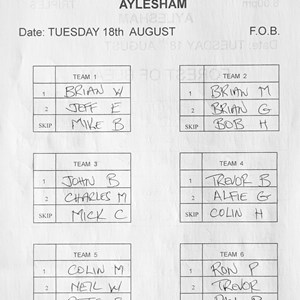 AYLESHAM
Date: TUESDAY 18th AUGUST F.O.B.
TEAM 1
1 BRIAN W
2 JEFF E
SKIP MIKE B
TEAM 2
1 BRIAN M
2 BRIAN G
SKIP BOB H
TEAM 3
1 JOHN B
2 CHARLES M
SKIP MICK C
TEAM 4
1 TREVOR B
2 ALFIE G
SKIP COLIN H
TEAM 5
1 COLIN M
2 NEIL W
SKIP
TEAM 6
1 RON P
2 TREVOR
SKIP